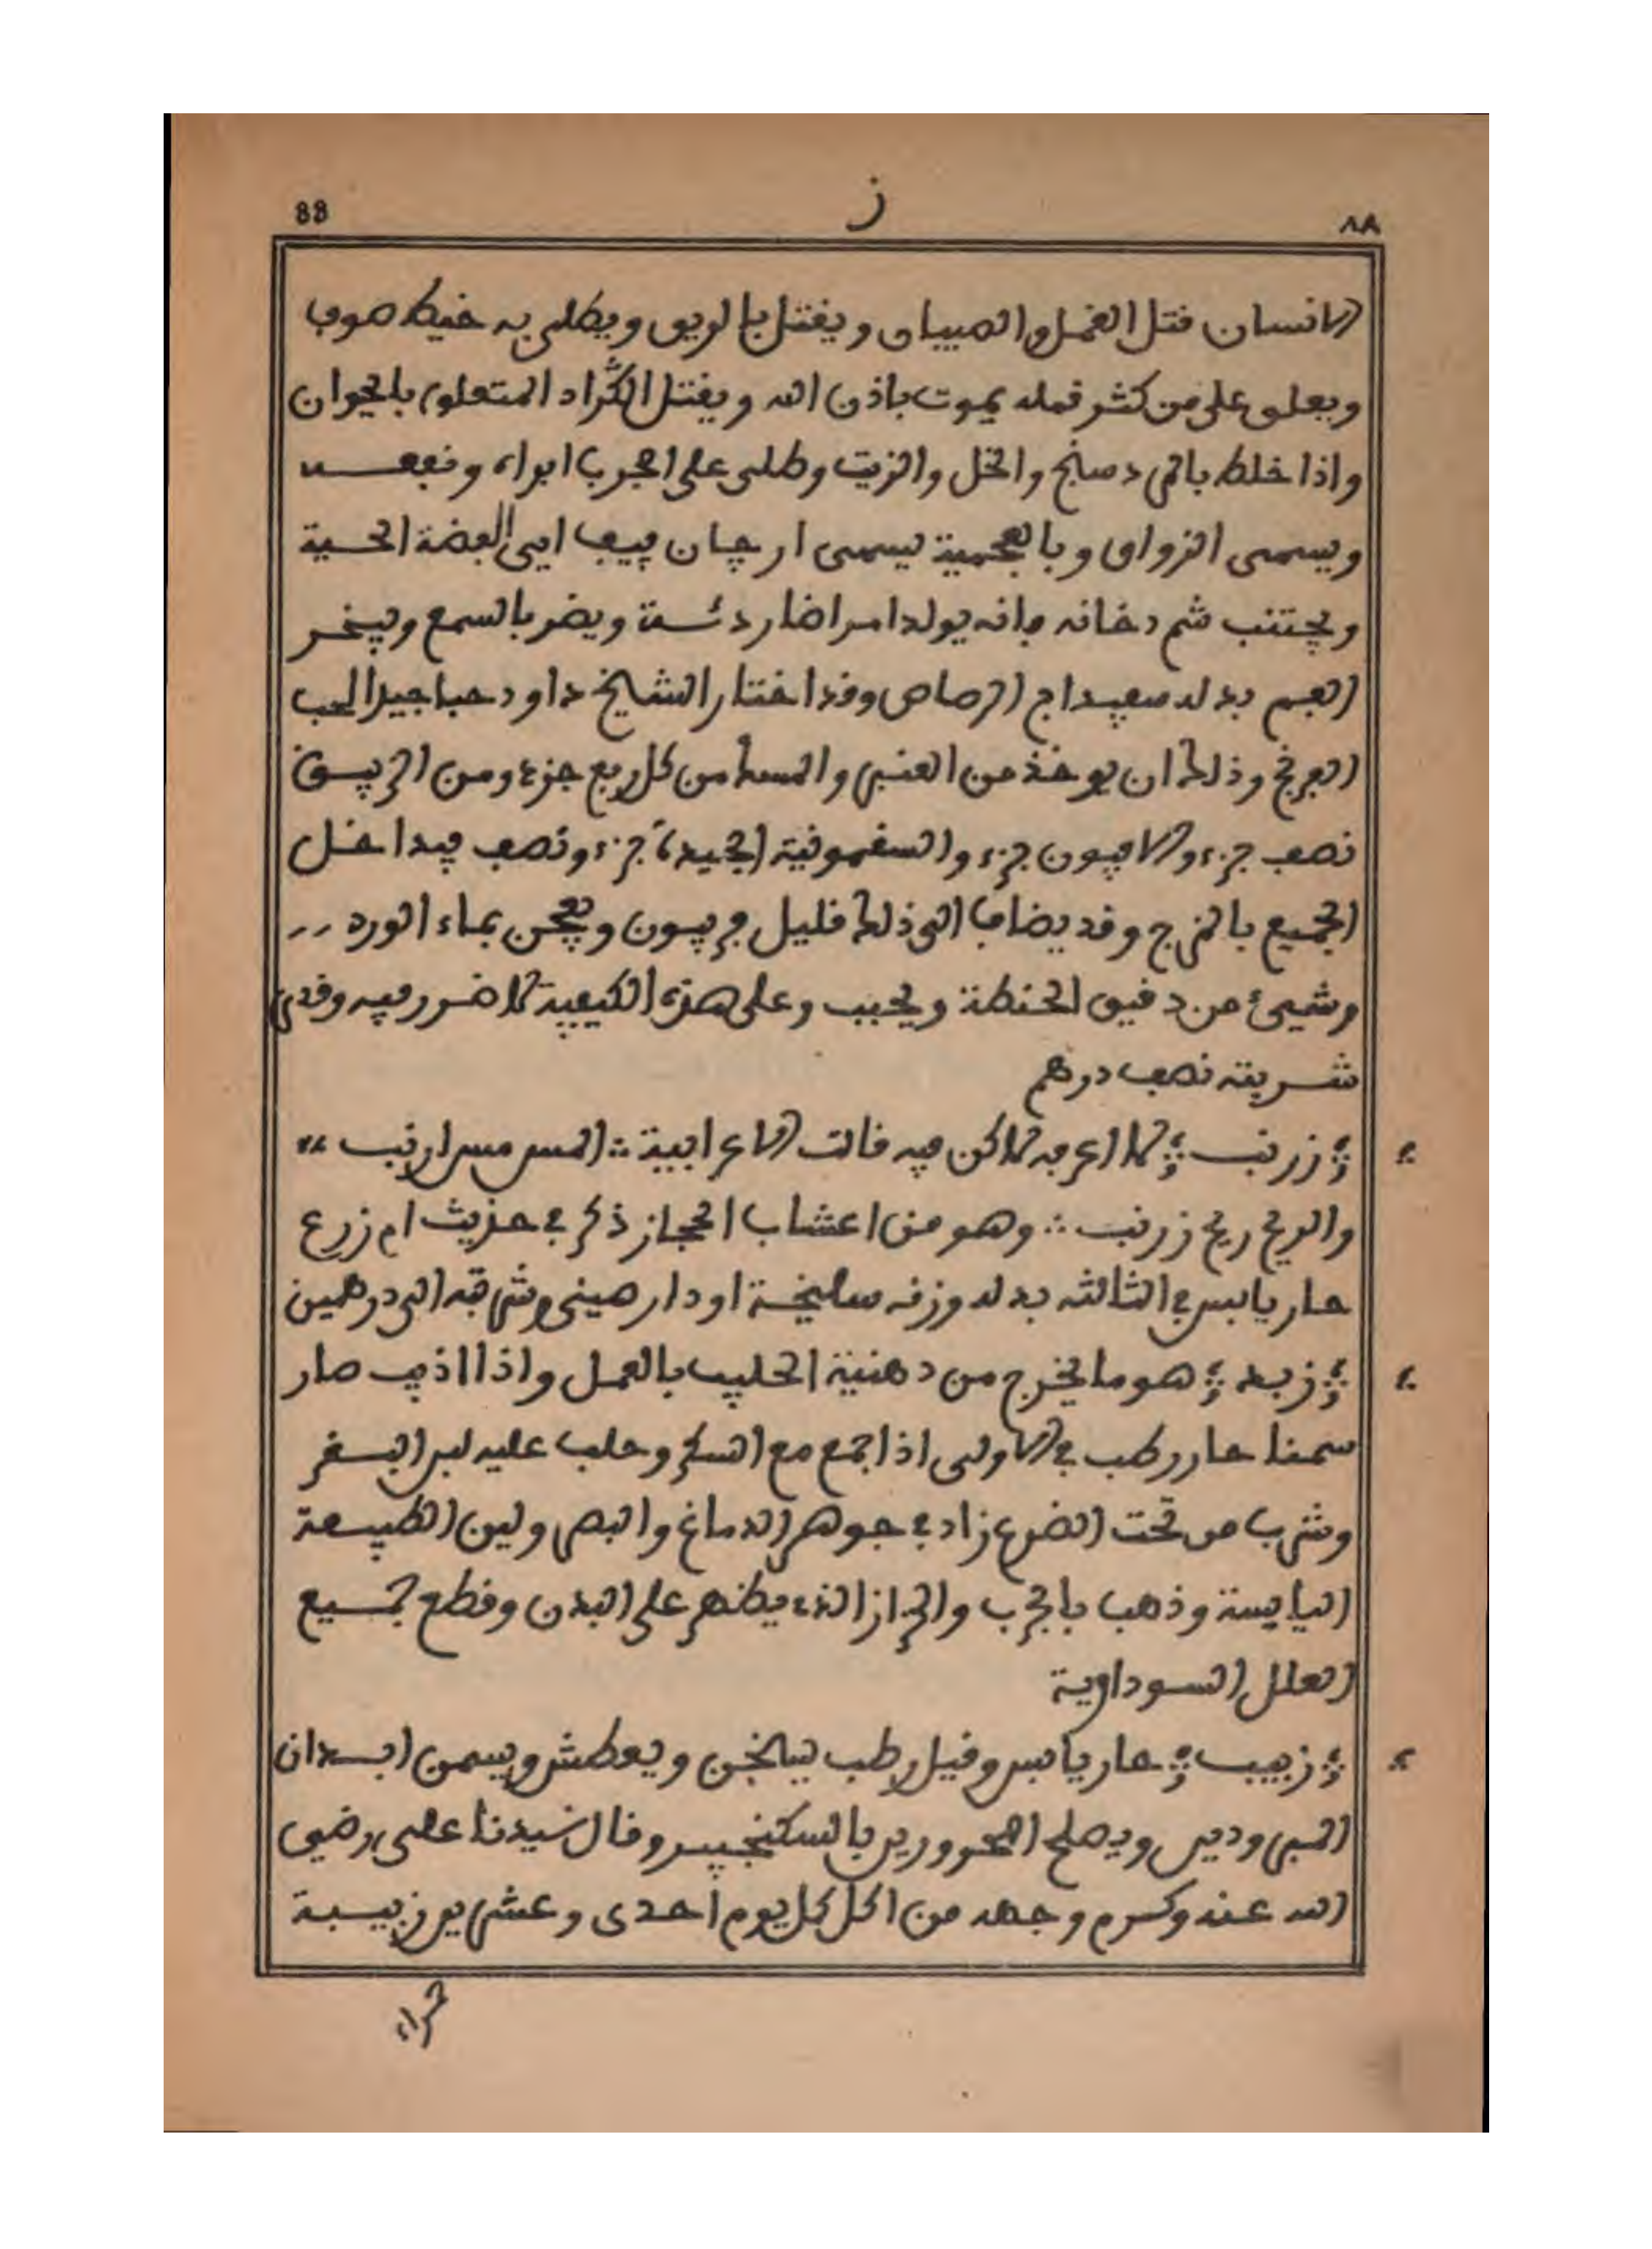 88
ز
٨٨
الانسان قتل القمل والصيبان ويقتل بالريق ويطلى به خيط صوف
ويعلق على من كثر قمله يموت باذن الله ويقتل القُراد المتعلق بالحيوان
واذا خلط بالمردسنج والخل والزيت وطلى على الجرب ابراه ونفعــه
ويسمى الزواق وبالعجمية يسمى ارجان بيب اي الفضة الحية
ويجتنب شم دخانه فانه يولد امراضا ردئـة ويضر بالسمع ويبخـر
الفم بدله سفيداج الرصاص وقد اختار الشايخ داود حبا جيد الحب
الفرنج وذلك ان يوخذ من العنبر والمسك من كل ربع جزء ومن الزيبـق
نصف جزء والافيون جزء والسقمونية الجيدة جزء ونصف فيداخـل
الجميع بالمزج وقد يضاف الى ذلك قليل فربيون ويعجن بماء الورد
وشيئ من دقيق الحنطة ويحبب وعلى هذه الكيفية لا ضرر فيه وقدر
شـربته نصف درهم
زرنب لا اعرفه لاكن فيه قالت الاعرابية المس مس ارنب
والريح ريح زرنب وهو من اعشاب الحجاز ذكر في حديث ام زرع
حار يابس في الثالثه بدله وزنه سليخـة او دار صيني وشربته الى درهمين
زبد هو ما يخرج من دهنية الحليب بالعمل واذا اذيب صار
سمنا حار رطب في الاولى اذا جمع مع السكر وحلب عليه لبن البقـر
وشرب من تحت الضرع زاد في جوهر الدماغ والبصر ولين الطبيـعة
اليابسة وذهب بالجرب والحزاز الذي يظهر على البدن وقطع جمـيع
العلل السـوداوية
زبيب حار يابس وقيل رطب يسخن ويعطش ويسمن ابـدان
المبرودين ويصلح المحرورين بالسكنجبيـن وقال سيدنا علي رضي
الله عنه وكرم وجهه من اكل كل يوم احدى وعشرين زبيـبة
حمراء